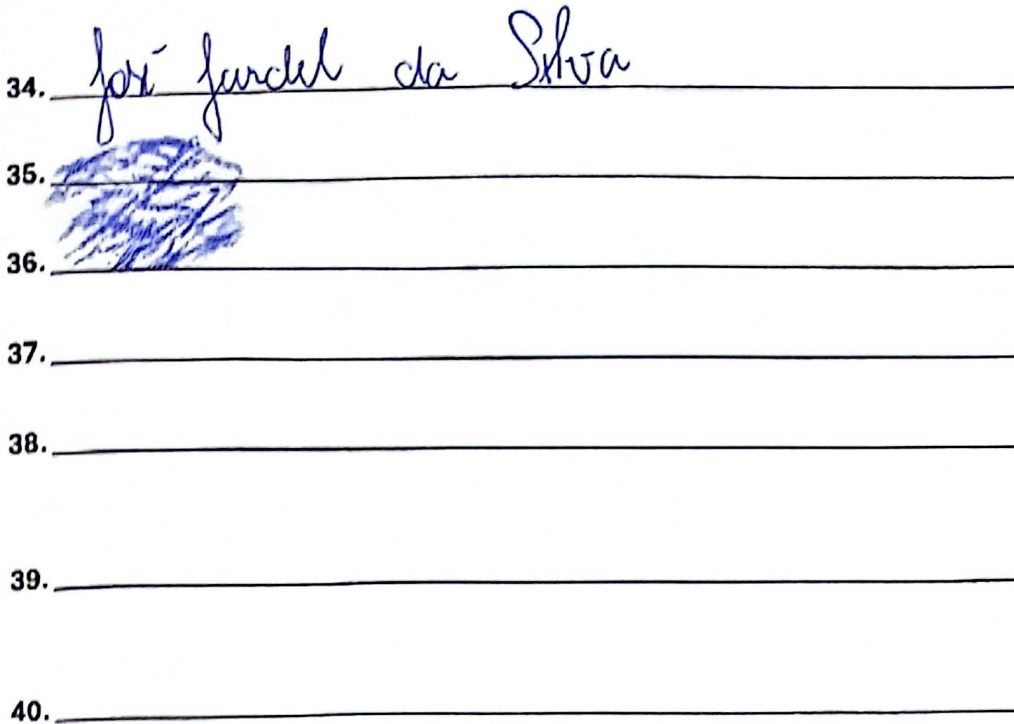 34. José Jardel da Silva
35.
36.
37.
38.
39.
40.